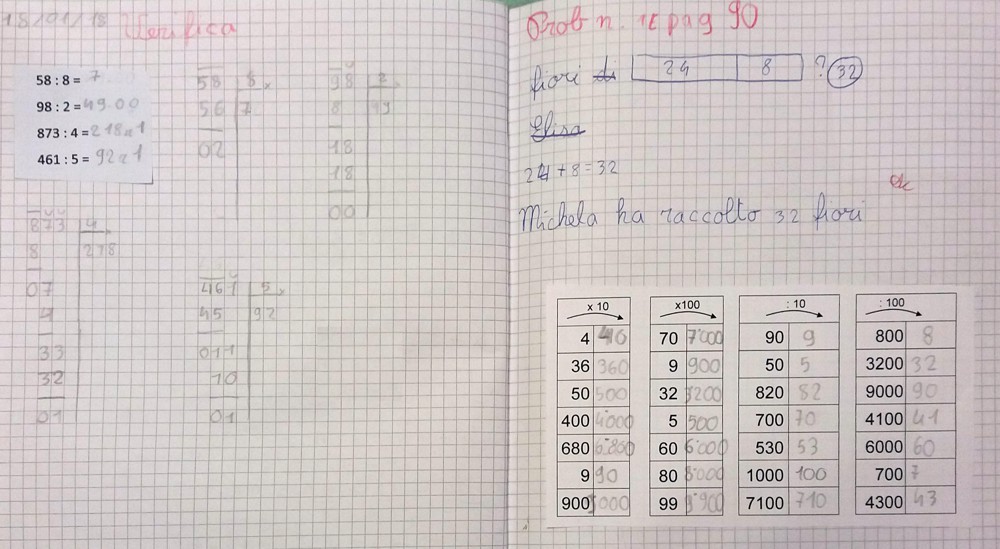 18/01/18
Verifica
58 : 8 = 7
98 : 2 = 49.00
873 : 4 = 218 r 1
461 : 5 = 92 r 1
58 8
56 7
02
98 2
8 49
18
18
00
873 4
8 218
07
4
33
32
01
461 5
45 92
011
10
01
Prob n. 16 pag 90
fiori di 24 8 ? 32
Elisa
24 + 8 = 32
Michela ha raccolto 32 fiori
ok
x 10
4
36 360
50 500
400 4'000
680 6'800
9 90
900
x100
70 7'000
9 900
32 3200
5 500
60 6'000
80 8'000
99 9'900
: 10
90 9
50 5
820 82
700 70
530 53
1000 100
7100 710
: 100
800 8
3200 32
9000 90
4100 41
6000 60
700 7
4300 43